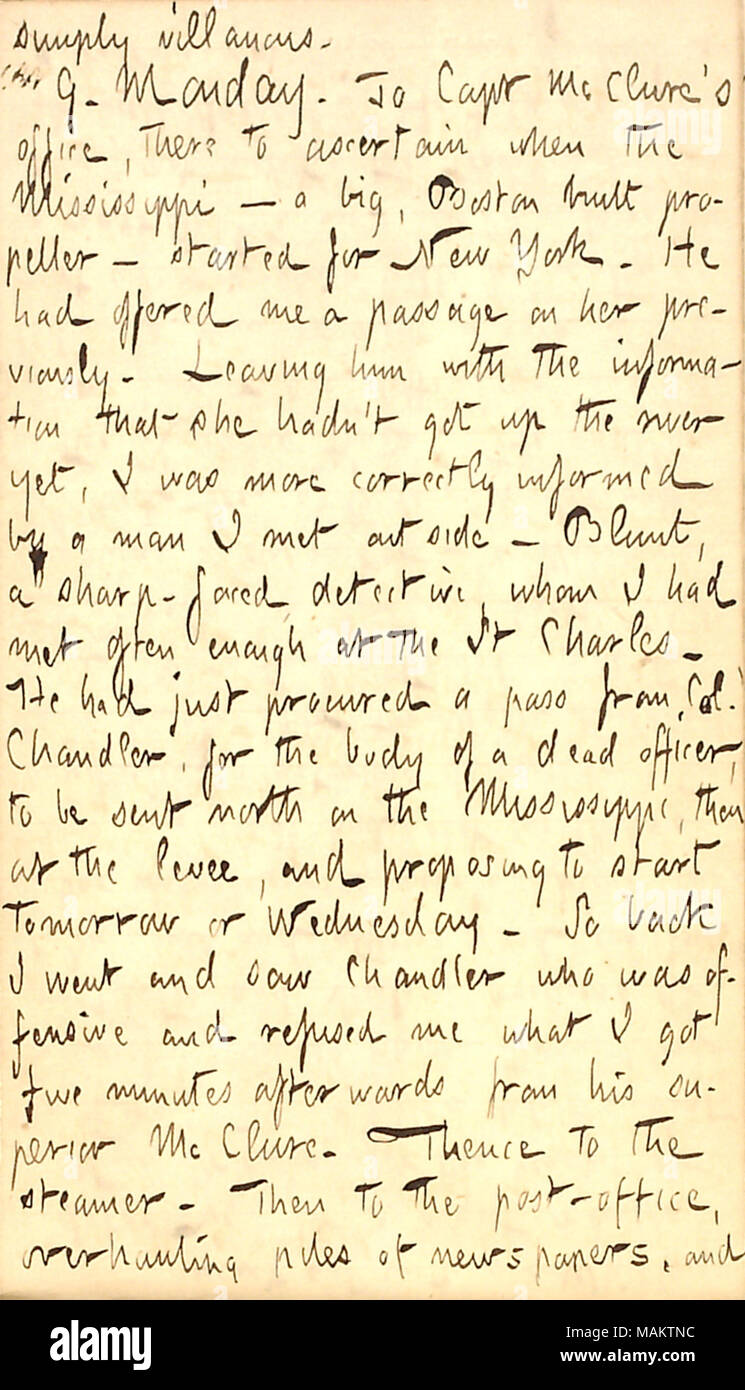 simply villanous.
9. Monday. To Capt McClure's
office, there to ascertain when the
Mississippi — a big, Boston built pro-
peller — started for New York. He
had offered me a passage on her pre-
viously. Leaving him with the informa-
tion that she hadn't got up the river
yet, I was more correctly informed
by a man I met outside — Blunt,
a sharp-faced detective, whom I had
met often enough at the St Charles.
He had just procured a pass from Col.
Chandler, for the body of a dead officer,
to be sent north on the Mississippi, then
at the levee, and proposing to start
tomorrow or Wednesday. So back
I went and saw Chandler who was of-
fensive and refused me what I got
five minutes afterwards from his su-
perior McClure. Thence to the
steamer. Then to the post-office,
overhauling piles of newspapers, and
alamy
Image ID: MAKTNC
www.alamy.com